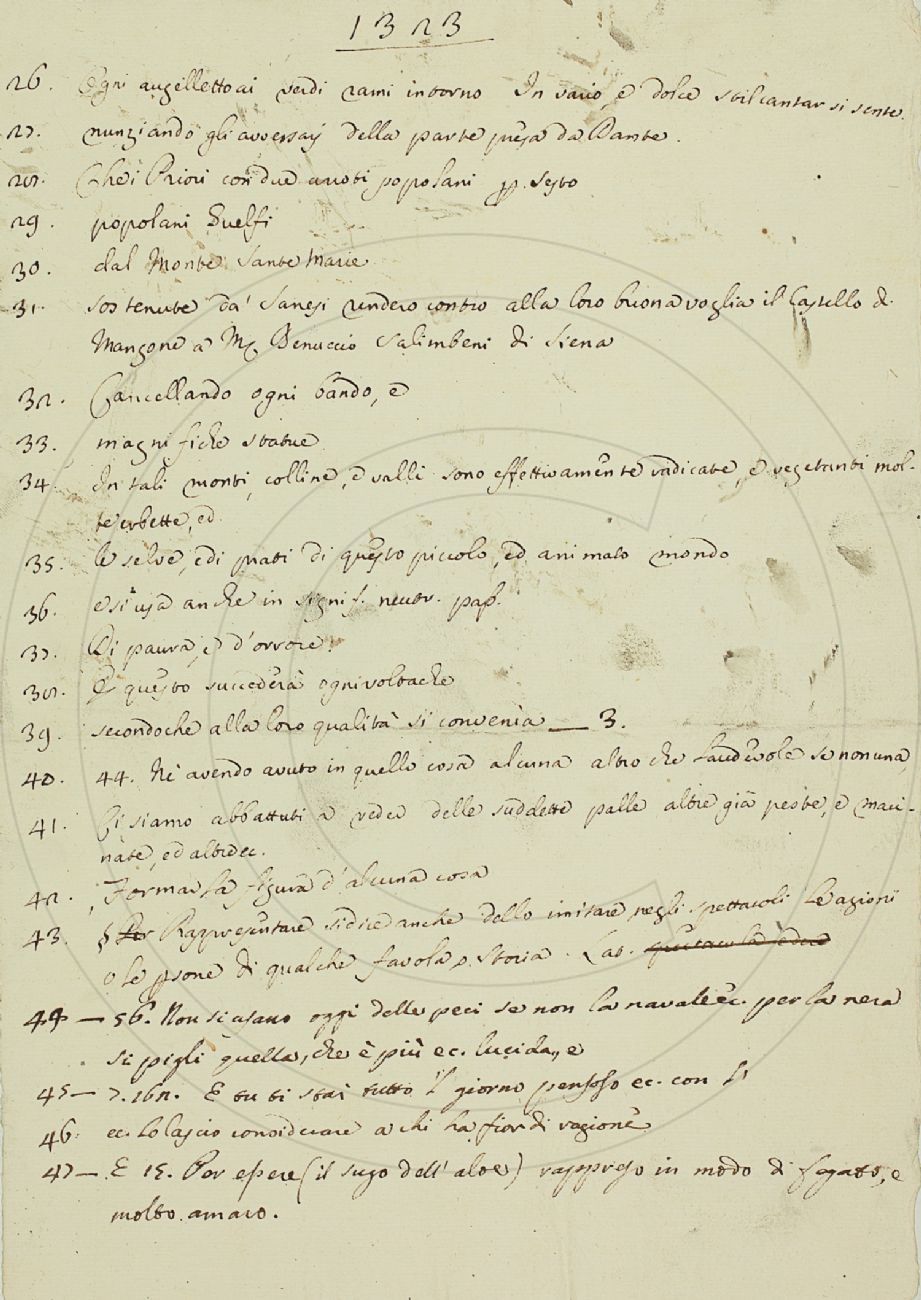 1323
26. Ogni augelletto ai verdi rami intorno In vario, e dolce stil cantar si sente.
27. nunziando gli avversarj della parte presa da Dante.
28. Che i Priori con due arroti popolani p. Sesto
29. popolani Guelfi
30. dal Monte Sante Marie
31. sostenute da' Sanesi renderò contro alla loro buona voglia il Castello di
Mangone a M. Benuccio Salimbeni di Siena
32. Cancellando ogni bando, e
33. magnifiche statue
34. In tali monti, colline, e valli sono effettivamente radicate, e vegetanti mol-
te erbette, ed
35. le selve, ed i prati di questo piccolo, ed animato mondo
36. e si usa anche in signif. neutr. pass.
37. Di paura, e d'orrore.
38. E questo succederà ogni volta che
39. secondo che alla loro qualità si convenia — 3.
40. 44. Nè avendo avuto in quello cosa alcuna altro che laudevole se non una,
41. Ci siamo abbattuti a veder delle suddette palle altre già peste, e maci-
nate, ed altre ec.
42. Formar la figura d'alcuna cosa
43. § Per Rappresentare si dice anche dello imitare negli spettacoli le azioni
o le psone di qualche favola, o Storia. Lat.
44 — 56. Non si usano oggi delle peci se non la navale ec. per la nera
si pigli quella, che è più ec. lucida, e
45 — 7. 162. E tu ti stai tutto 'l giorno pensoso ec. con l'
46. ec. lo lascio considerare a chi ha fior di ragione
47 — E 15. Per essere (il sugo dell'aloe) rappreso in modo di fegato, e
molto amaro.